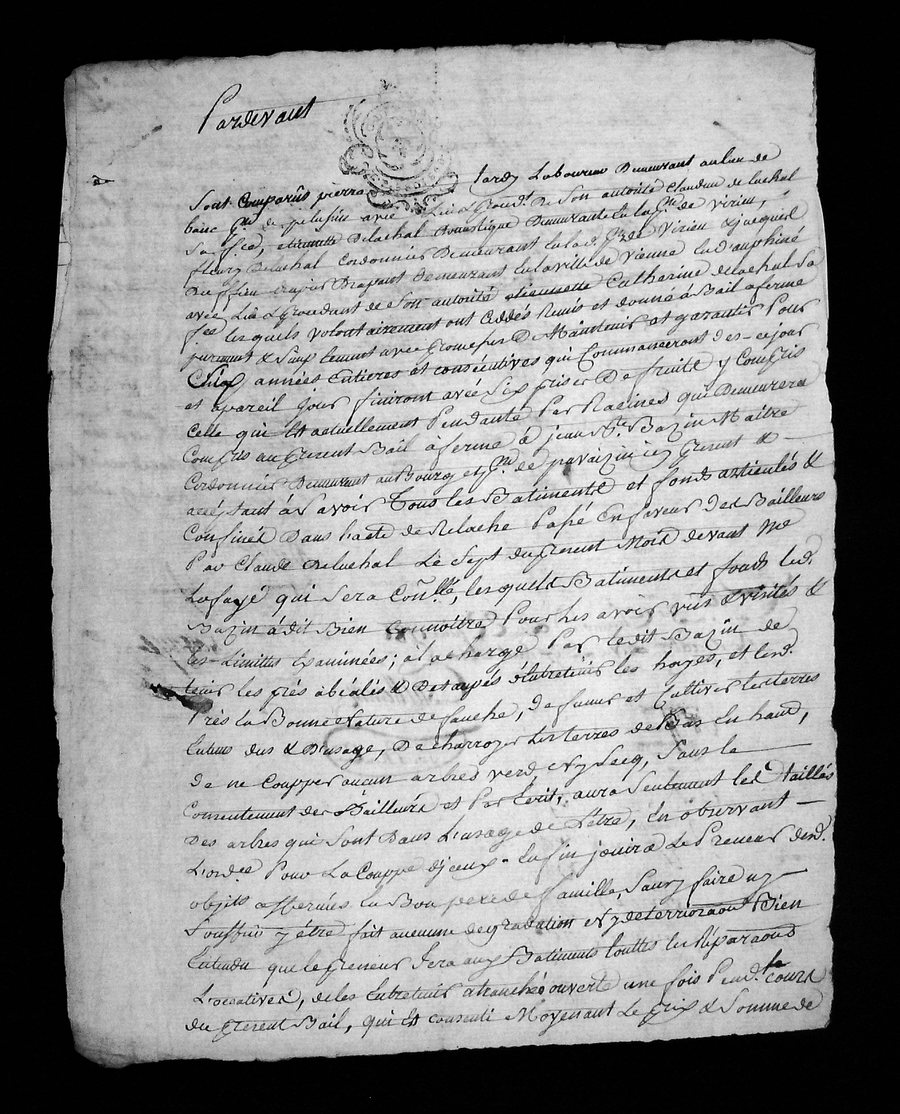 Pardevant
Sont Comparûs pierre tardy Laboureur Demeurant au lieu de
banc psse de pelussin avec Lie & proced.t De Son autorité Claudine delachal
Sa fée, etiennette Delachal Domestique Demeurante en la psse de Virieu,
fleury Delachal Cordonnier Demeurant en lad. psse de Virieu & jacques
Duffieu Drapant Demeurant en la ville de Vienne en Dauphiné
avec Lie & procedant de Son autorité etiennette Catherine delachal Sa
fée lesquels volontairement ont Ceddés Remis et donné à Bail a ferme
purement & Simplement avec promesses De Maintenir et garantir Pour
Six années Entieres et consécutives qui Commanceront des-ce jour
et apareil jour finiront avec Six prises De fruits y Compris
Celle qui Est actuellement Pendante Par Racines qui Demeurera
Compris au present Bail à ferme à jean Bte Bazin Maitre
Cordonnier Demeurant au Bourg et psse de pavaizin icy present &
accéptant à Savoir Tous les Batiments et fonds articulés &
Confinés Dans l'acte de Relache Passé En faveur des Bailleurs
Par Claude Delachal Le Sept du present Mois devant Me
Lafayé qui Sera Conllé, lesquels Batiments et fonds led.
Bazin à dit Bien Connoitre Pour les avoir vus & visités &
les Limittes Examinées; à la charge Par le dit Bazin de
tenir les prés abéalés & Detaupés d'Entretenir les hayes, et lesd.
Prés en Bonne Nature de fauche, de fumer et Cultiver les terres
En tems dus & D'usage, De charroyer les terres de Bas En haut,
de ne Coupper aucun arbres verd Ny Secq, Sans le
Consentement des Bailleurs et Par Ecrit, aura Seulement les taillés
Des arbres qui Sont Dans L'usage de L'être, En observant
L'ordre Pour La Couppe d'jceux. Enfin jouira Le Preneur desd.
objets affermés En Bon pere de famille, Sans y faire ny
Souffrir y être fait aucunne degradation Ny deterrioraon Bien
Entendu que le preneur fera aux Batiments touttes les Réparaons
Locatives, de les Entretenir a tranché ouvert une fois Pend.t le cours
du present Bail, qui Est consenti Moyenant Le prix & Somme de